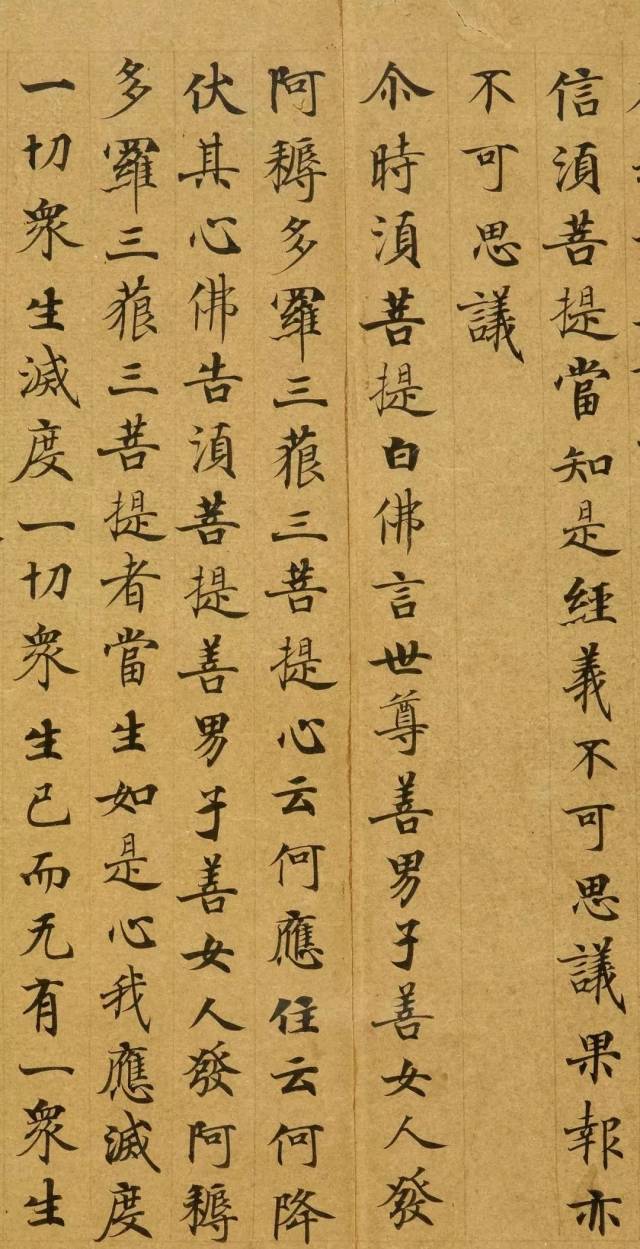 信湏菩提當知是經義不可思議果報亦
不可思議
尒時湏菩提白佛言世尊善男子善女人發
阿耨多羅三藐三菩提心云何應住云何降
伏其心佛告湏菩提善男子善女人發阿耨
多羅三藐三菩提者當生如是心我應滅度
一切衆生滅度一切衆生已而无有一衆生